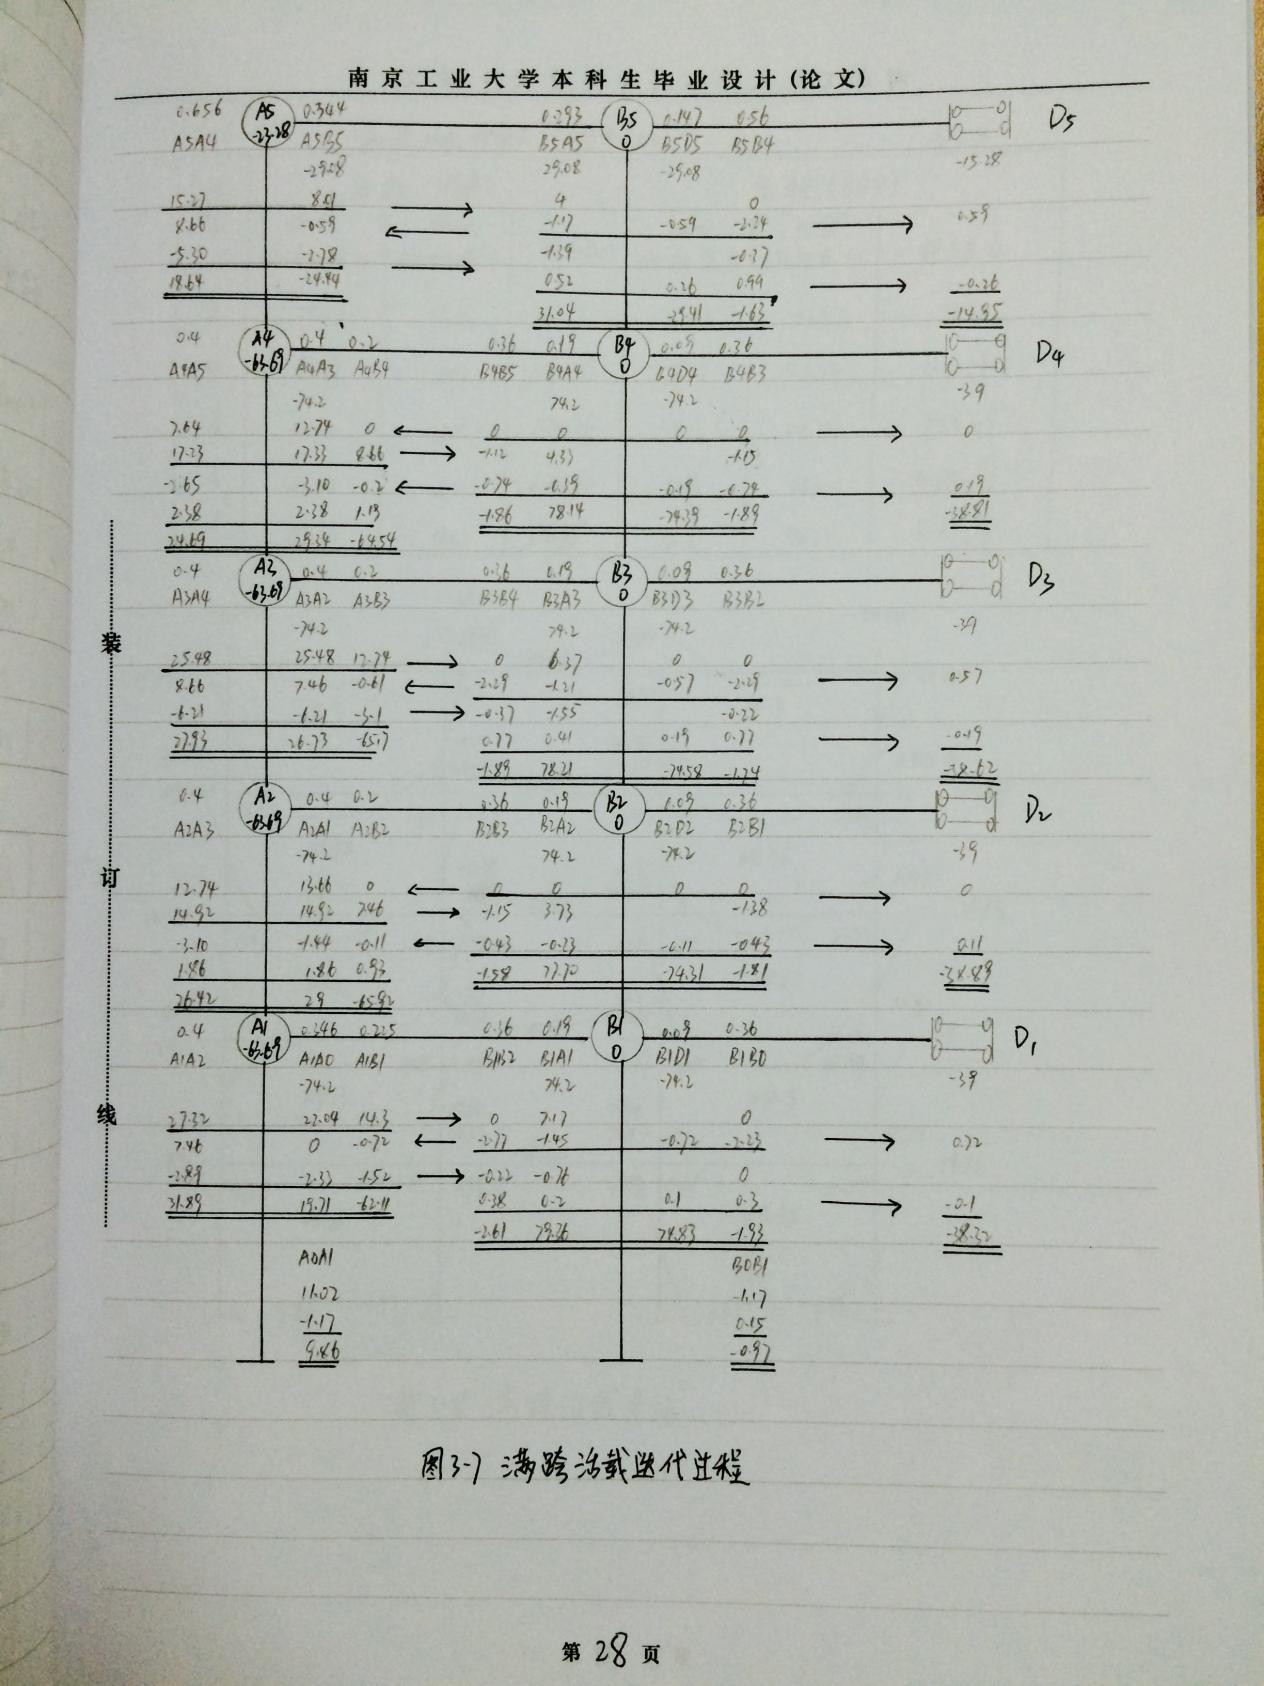 南京工业大学本科生毕业设计(论文)
0.656 A5 0.344 0.293 B5 0.147 0.56 D5
A5A4 -23.28 A5B5 B5A5 0 B5D5 B5B4
-29.08 29.08 -29.08 -15.28
15.27 8.01 4 0
8.66 -0.59 -1.17 -0.59 -2.24 0.59
-5.30 -2.78 -1.39 -0.37
18.64 -24.44 0.52 0.26 0.99 -0.26
31.04 -29.41 -1.63 -14.95
0.4 A4 0.4 0.2 0.36 0.19 B4 0.09 0.36 D4
A4A5 -63.69 A4A3 A4B4 B4B5 B4A4 0 B4D4 B4B3
-74.2 74.2 -74.2 -39
7.64 12.74 0 0 0 0 0 0
17.23 17.33 8.66 -1.12 4.33 -1.15
-2.65 -3.10 -0.2 -0.74 -0.39 -0.19 -0.74 0.19
2.38 2.38 1.19 -1.86 78.14 -74.39 -1.89 -38.81
24.69 29.34 -64.54
0.4 A3 0.4 0.2 0.36 0.19 B3 0.09 0.36 D3
A3A4 -63.69 A3A2 A3B3 B3B4 B3A3 0 B3D3 B3B2
-74.2 74.2 -74.2 -39
25.48 25.48 12.74 0 6.37 0 0
8.66 7.46 -0.61 -2.29 -1.21 -0.57 -2.29 0.57
-6.21 -6.21 -3.1 -0.37 -1.55 -0.22
27.93 26.73 -65.17 0.77 0.41 0.19 0.77 -0.19
-1.89 78.21 -74.58 -1.74 -38.62
0.4 A2 0.4 0.2 0.36 0.19 B2 0.09 0.36 D2
A2A3 -63.69 A2A1 A2B2 B2B3 B2A2 0 B2D2 B2B1
-74.2 74.2 -74.2 -39
12.74 13.66 0 0 0 0 0 0
14.92 14.92 7.46 -1.15 3.73 -1.38
-3.10 -1.44 -0.11 -0.43 -0.23 -0.11 -0.43 0.11
1.86 1.86 0.93 -1.58 77.70 -74.31 -1.81 -38.89
26.42 29 -65.92
0.4 A1 0.346 0.225 0.36 0.19 B1 0.09 0.36 D1
A1A2 -63.69 A1A0 A1B1 B1B2 B1A1 0 B1D1 B1B0
-74.2 74.2 -74.2 -39
27.32 22.04 14.3 0 7.17 0
7.46 0 -0.72 -2.77 -1.45 -0.72 -2.23 0.72
-2.89 -2.33 -1.52 -0.22 -0.76 0
31.89 19.71 -62.11 0.38 0.2 0.1 0.3 -0.1
-2.61 79.36 74.83 -1.93 -38.32
A0A1 B0B1
11.02 -1.17
-1.17 0.15
9.86 -0.97
装
订
线
图3-7 满跨活载迭代过程
第 28 页